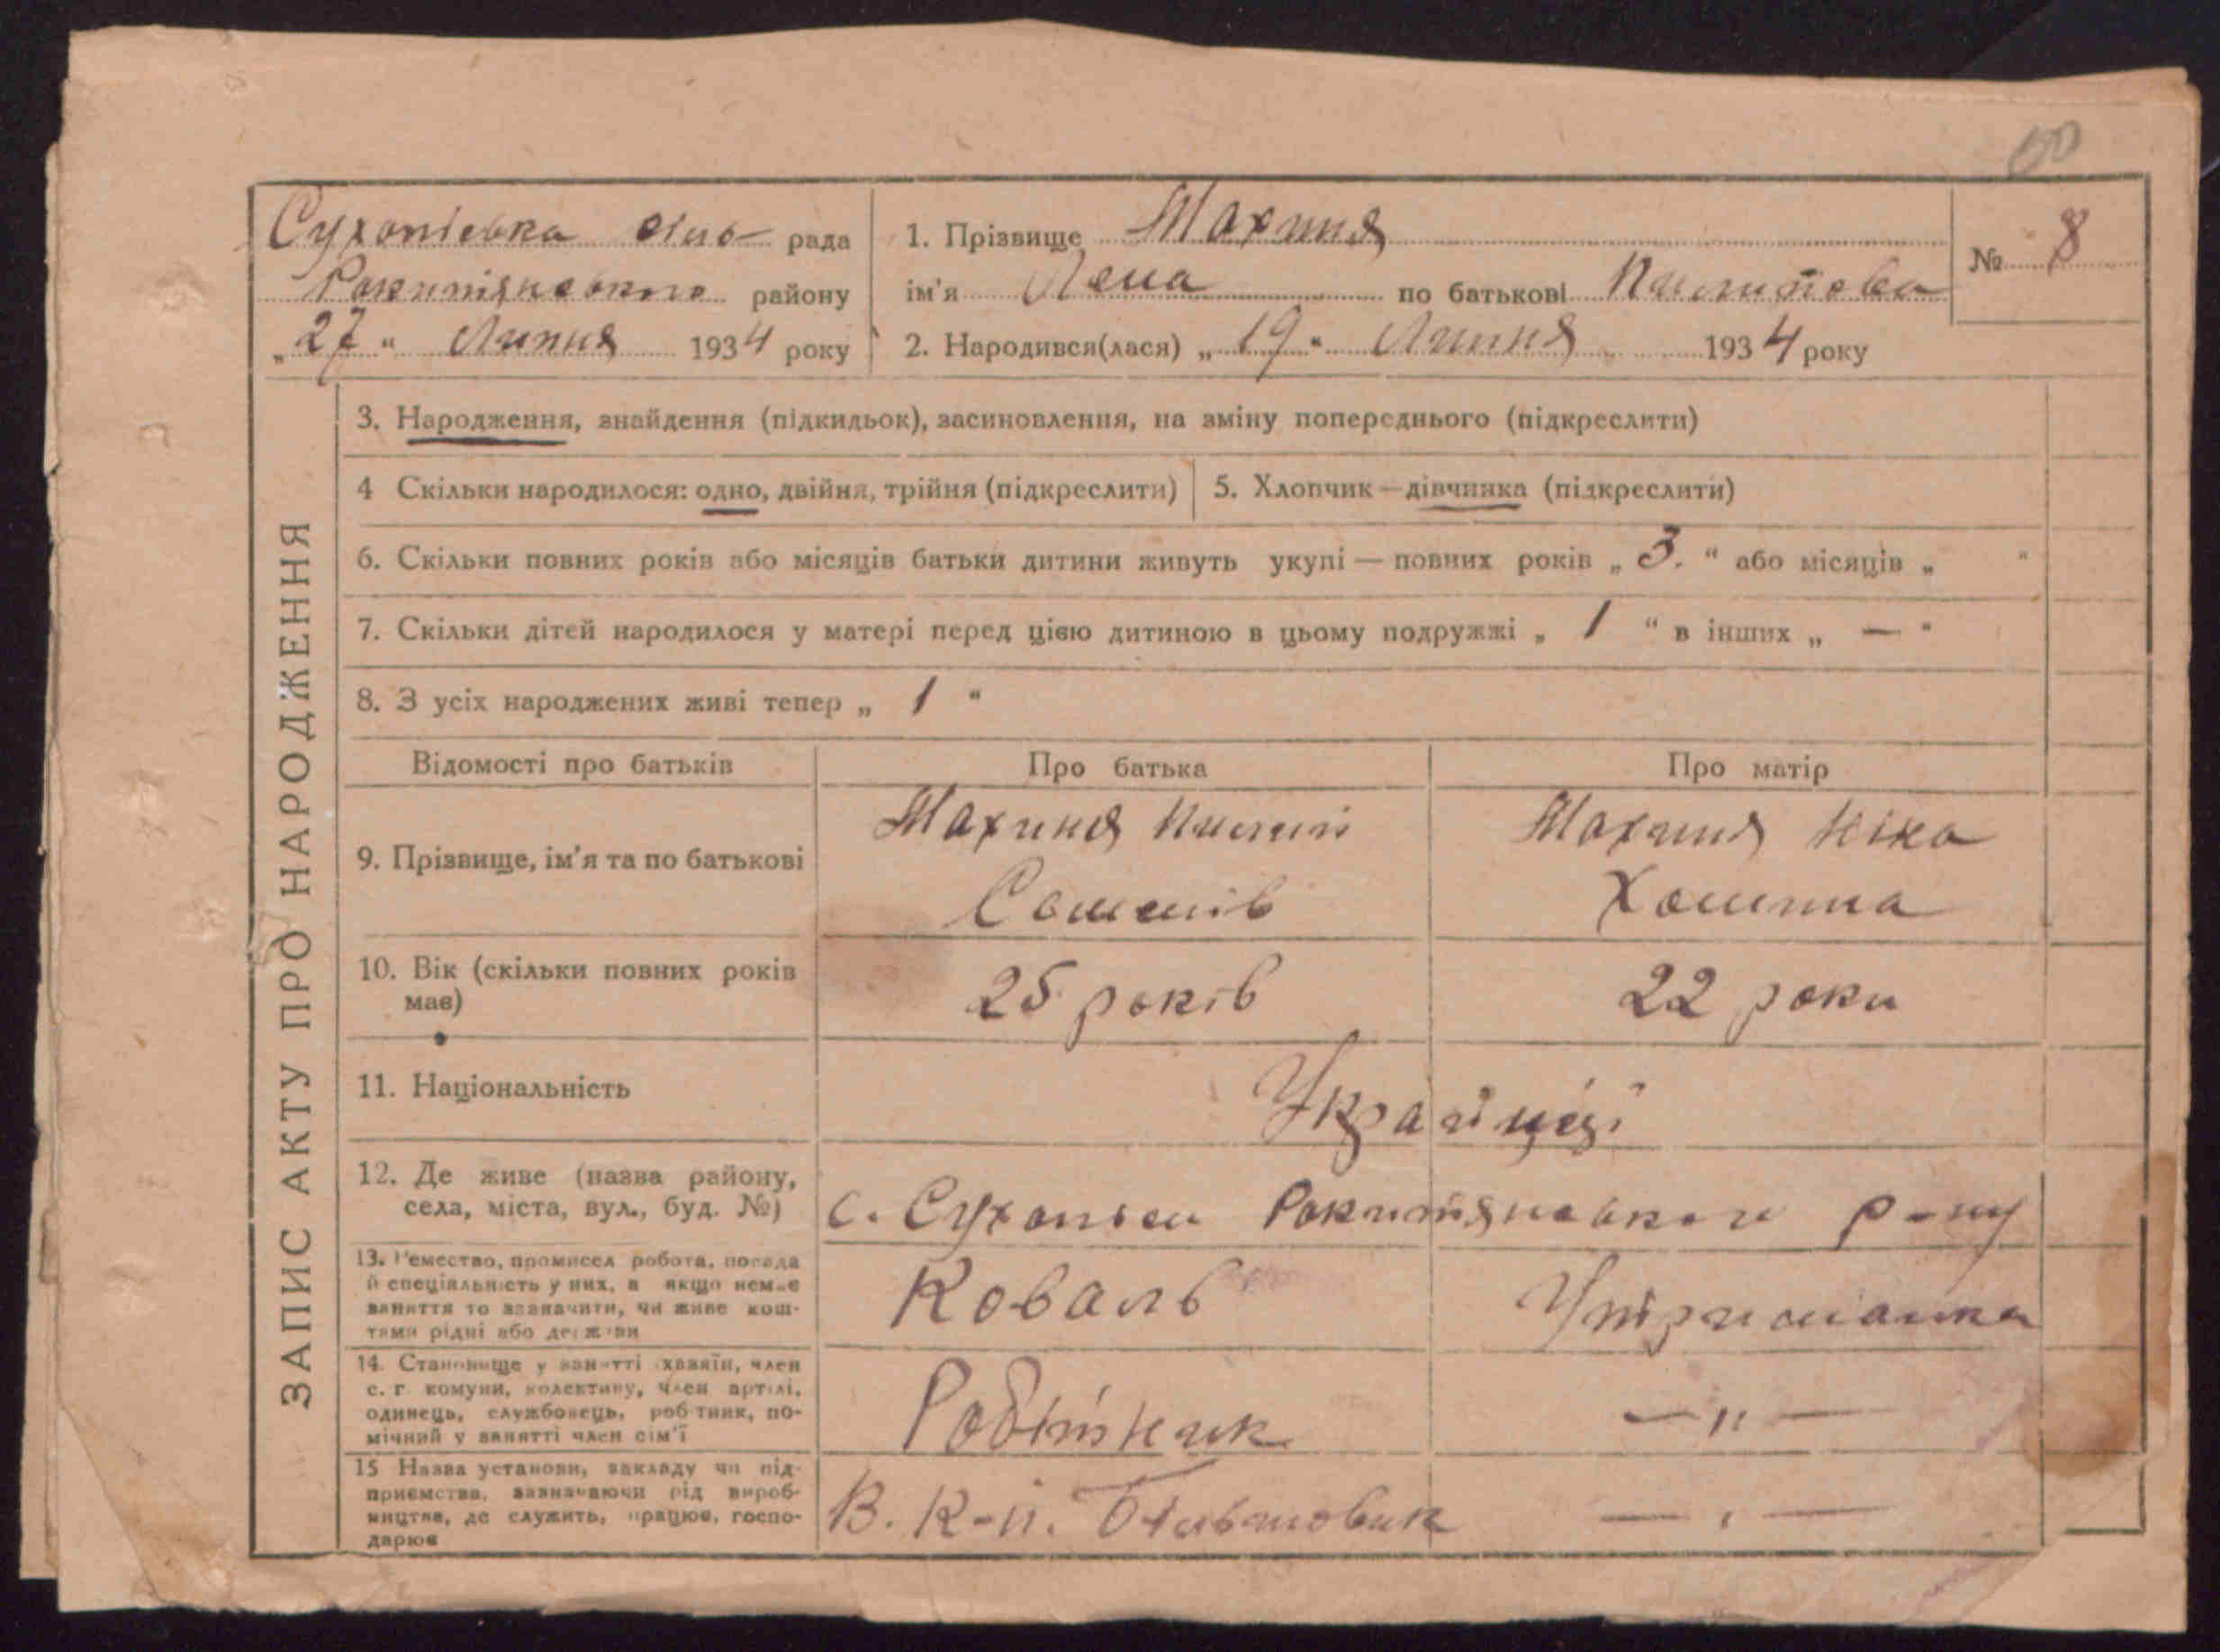 60
Сухоліська сіль- рада
Рокитянського району
„27“ Липня 1934 року
1. Прізвище Махиня
ім'я Лена по батькові Пилипова
№ 8
2. Народився(лася) „19“ Липня 1934 року
ЗАПИС АКТУ ПРО НАРОДЖЕННЯ
3. Народження, знайдення (підкидьок), засиновлення, на зміну попереднього (підкреслити)
4 Скільки народилося: одно, двійня, трійня (підкреслити)
5. Хлопчик—дівчинка (підкреслити)
6. Скільки повних років або місяців батьки дитини живуть укупі — повних років „ 3. “ або місяців „ “
7. Скільки дітей народилося у матері перед цією дитиною в цьому подружжі „ 1 “ в інших „ — “
8. З усіх народжених живі тепер „ 1 “
Відомості про батьків
Про батька
Про матір
9. Прізвище, ім'я та по батькові
Махиня Пилип
Махиня
10. Вік (скільки повних років
має)
25 років
22 роки
11. Національність
Українці
12. Де живе (назва району,
села, міста, вул., буд. №)
с. Сухоліси Рокитянського р-ну
13. Ремество, промисел робота, посада
й спеціяльність у них, а якщо немає
заняття то зазначити, чи живе кош-
тами рідні або держави
Коваль
Утриманка
14. Становище у занятті хазяїн, член
с. г. комуни, колективу, член артілі,
одинець, службовець, робітник, по-
мічний у занятті член сім'ї
Робітник
— „ —
15 Назва установи, закладу чи під-
приємства, зазначаючи рід вироб-
ництва, де служить, працює, госпо-
дарює
В. К-п. Більшовик
— „ —